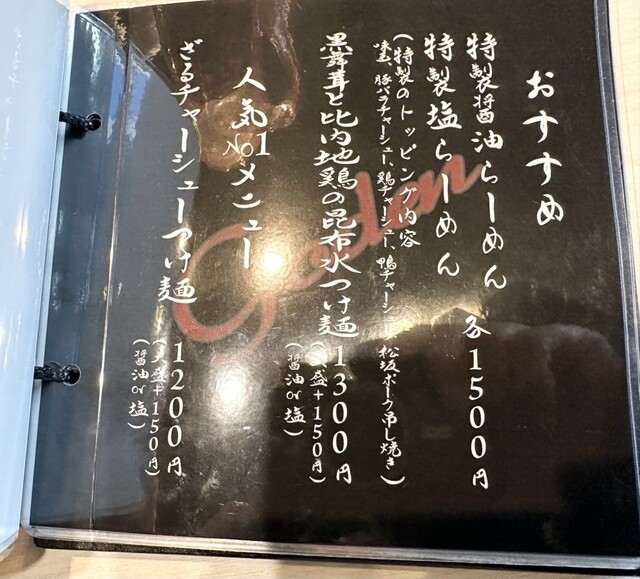 おすすめ
特製醤油らーめん 各1500円
特製塩らーめん
(特製のトッピング内容
味玉、豚バラチャーシュー、鶏チャーシュー、鴨チャーシュー、松坂ポーク吊し焼き)
黒舞茸と比内地鶏の昆布水つけ麺 1300円
(大盛+150円)
(醤油or塩)
人気No1メニュー
ざるチャーシューつけ麺 1200円
(大盛+150円)
(醤油or塩)